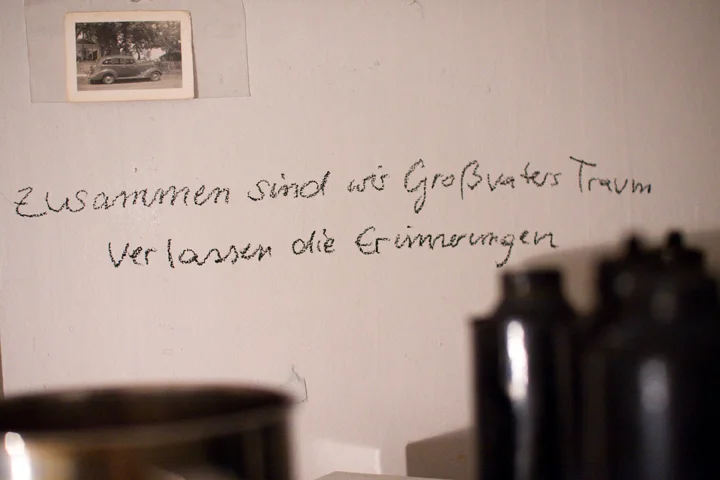 Zusammen sind wir Großvaters Traum
Verlassen die Erinnerungen